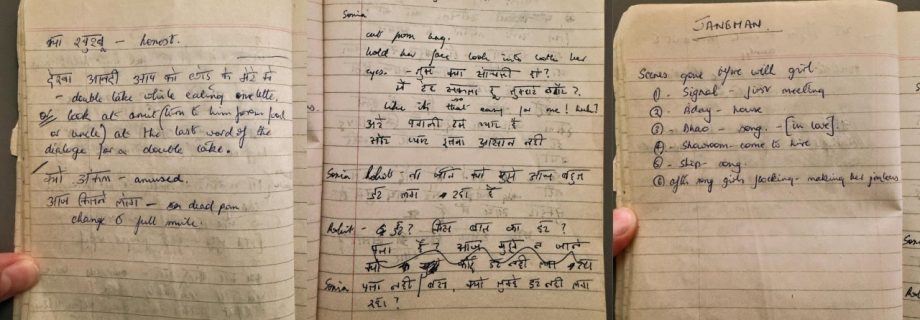 क्या खुशबू - honest.
देखा आनटी आप को छोड के मेरे से
- double take while eating omelette.
Or look at amit (turn to him from road
or uncle) at the last word of the
dialogue for a double take.
- amused.
आज कितने लोग - dead pan
change to full smile.
Sonia
cut from hug.
hold her face look into
eyes. - तुम क्या सोचती हो?
मैं रह सकता हूँ तुम्हारे बगैर?
like it's that easy for me! huh?
अरे पगली इसे प्यार है
और प्यार इतना आसान नही
Sonia Rohit ना जाने क्यों मुझे आज बहुत
डर लग रहा है
Rohit - डर? किस बात का डर?
पता है? आज मुझे न जाने
क्यों कोई डर नही लग रहा
Sonia पता नही बस, क्यों तुम्हे डर नही लग
रहा?
JANEMAN.
Scenes gone before with girl
① - Signal - first meeting
② - Bday - house
③ - Dhao - song. - [in love].
④ - Showroom - come to hire
⑤ - Ship - song.
⑥ after song girls flocking - making her jealous